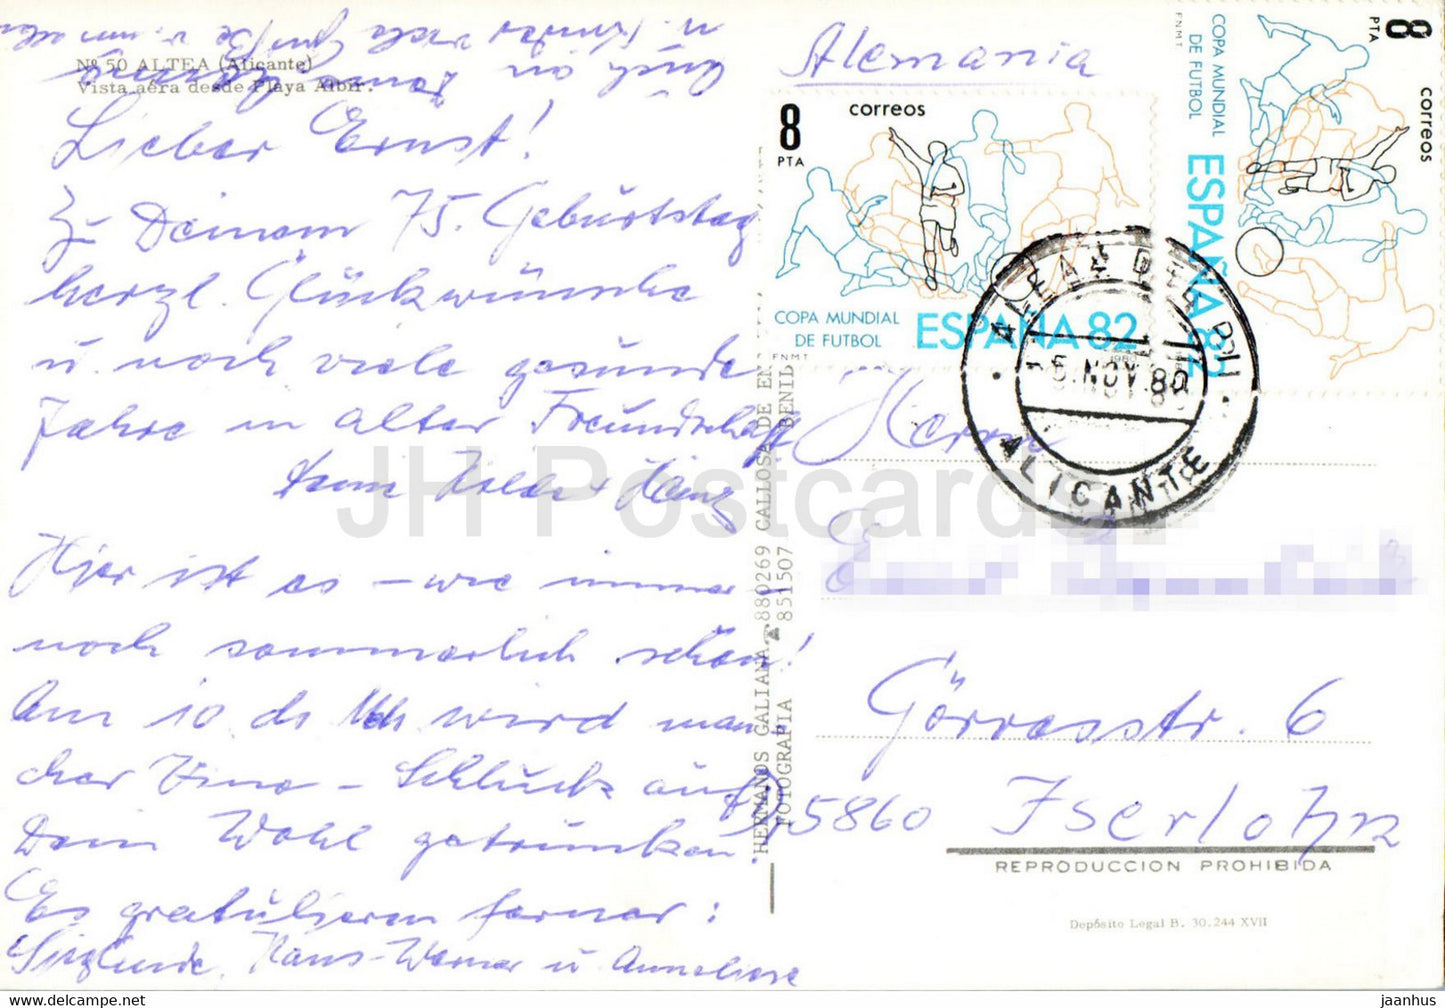 Nº 50 ALTEA (Alicante)
Vista aéra desde Playa Albir.
Lieber Ernst!
Zu Deinem 75. Geburtstag
herzl. Glückwünsche
u. noch viele gesunde
Jahre in alter Freundschaft
Heinz
Hier ist es – wie immer –
noch sommerlich schön!
Am 10. ds wird man
cher Vino – Schluck auf
Dein Wohl getrunken.
Es gratulieren ferner:
Sieglinde, Hans-Werner u Anneliese
HERMANOS GALIANA 880269 CALLOSA DE EN
FOTOGRAFIA 851507 BENIL
Alemania
8
PTA
correos
COPA MUNDIAL
DE FUTBOL
ESPAÑA 82
FNMT
1980
8
PTA
correos
COPA MUNDIAL
DE FUTBOL
ESPAÑA 82
FNMT
ALFAZ DEL PI
5 NOV. 80
ALICANTE
Herrn
Görresstr. 6
D-5860 Iserlohn
REPRODUCCION PROHIBIDA
Depósito Legal B. 30.244 XVII
JH Postcards
https://www.hippostcard.com/store/jh-postcards
jaanhus